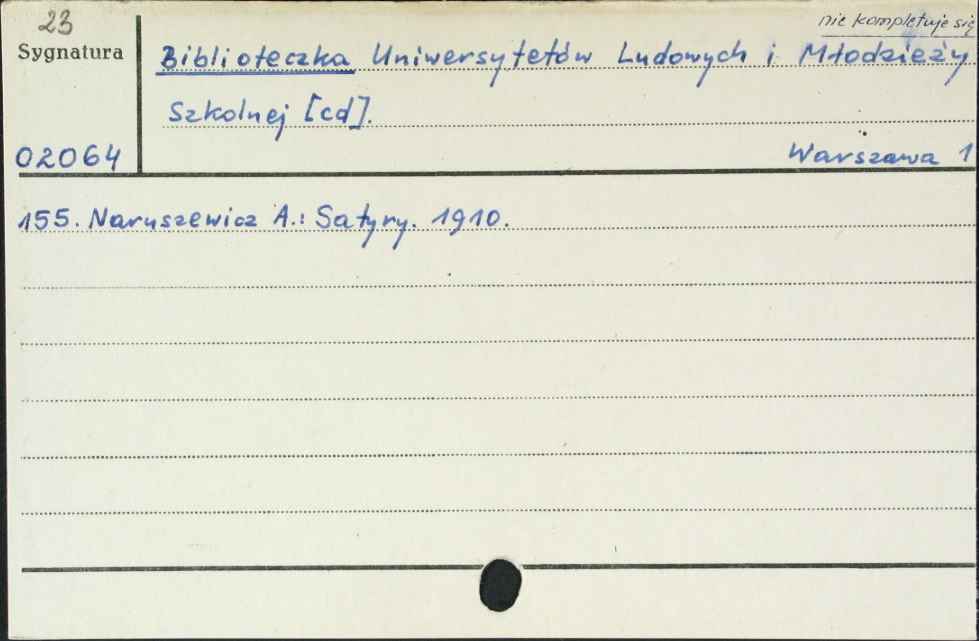 23
nie kompletuje się
Sygnatura
Biblioteczka Uniwersytetów Ludowych i Młodzieży
Szkolnej [cd].
02064
Warszawa 1
155. Naruszewicz A.: Satyry. 1910.